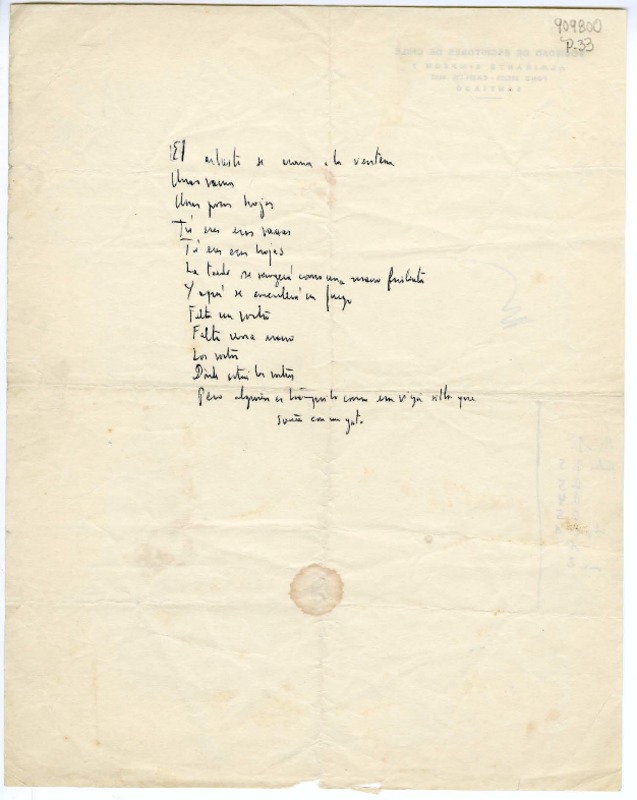 909800
P-33
SOCIEDAD DE ESCRITORES DE CHILE
ALMIRANTE SIMPSON 7
SANTIAGO
El arbusto se asoma a la ventana
Unas ramas
Unas pocas hojas
Tú eres esas ramas
Tú eres esas hojas
La tarde se como una mano
Y aquí se encenderá un fuego
Falta un rostro
Falta una mano
Los rostros
Dónde están los rostros
Pero alguien es tranquilo como esa vieja silla que
sueña con un gato.